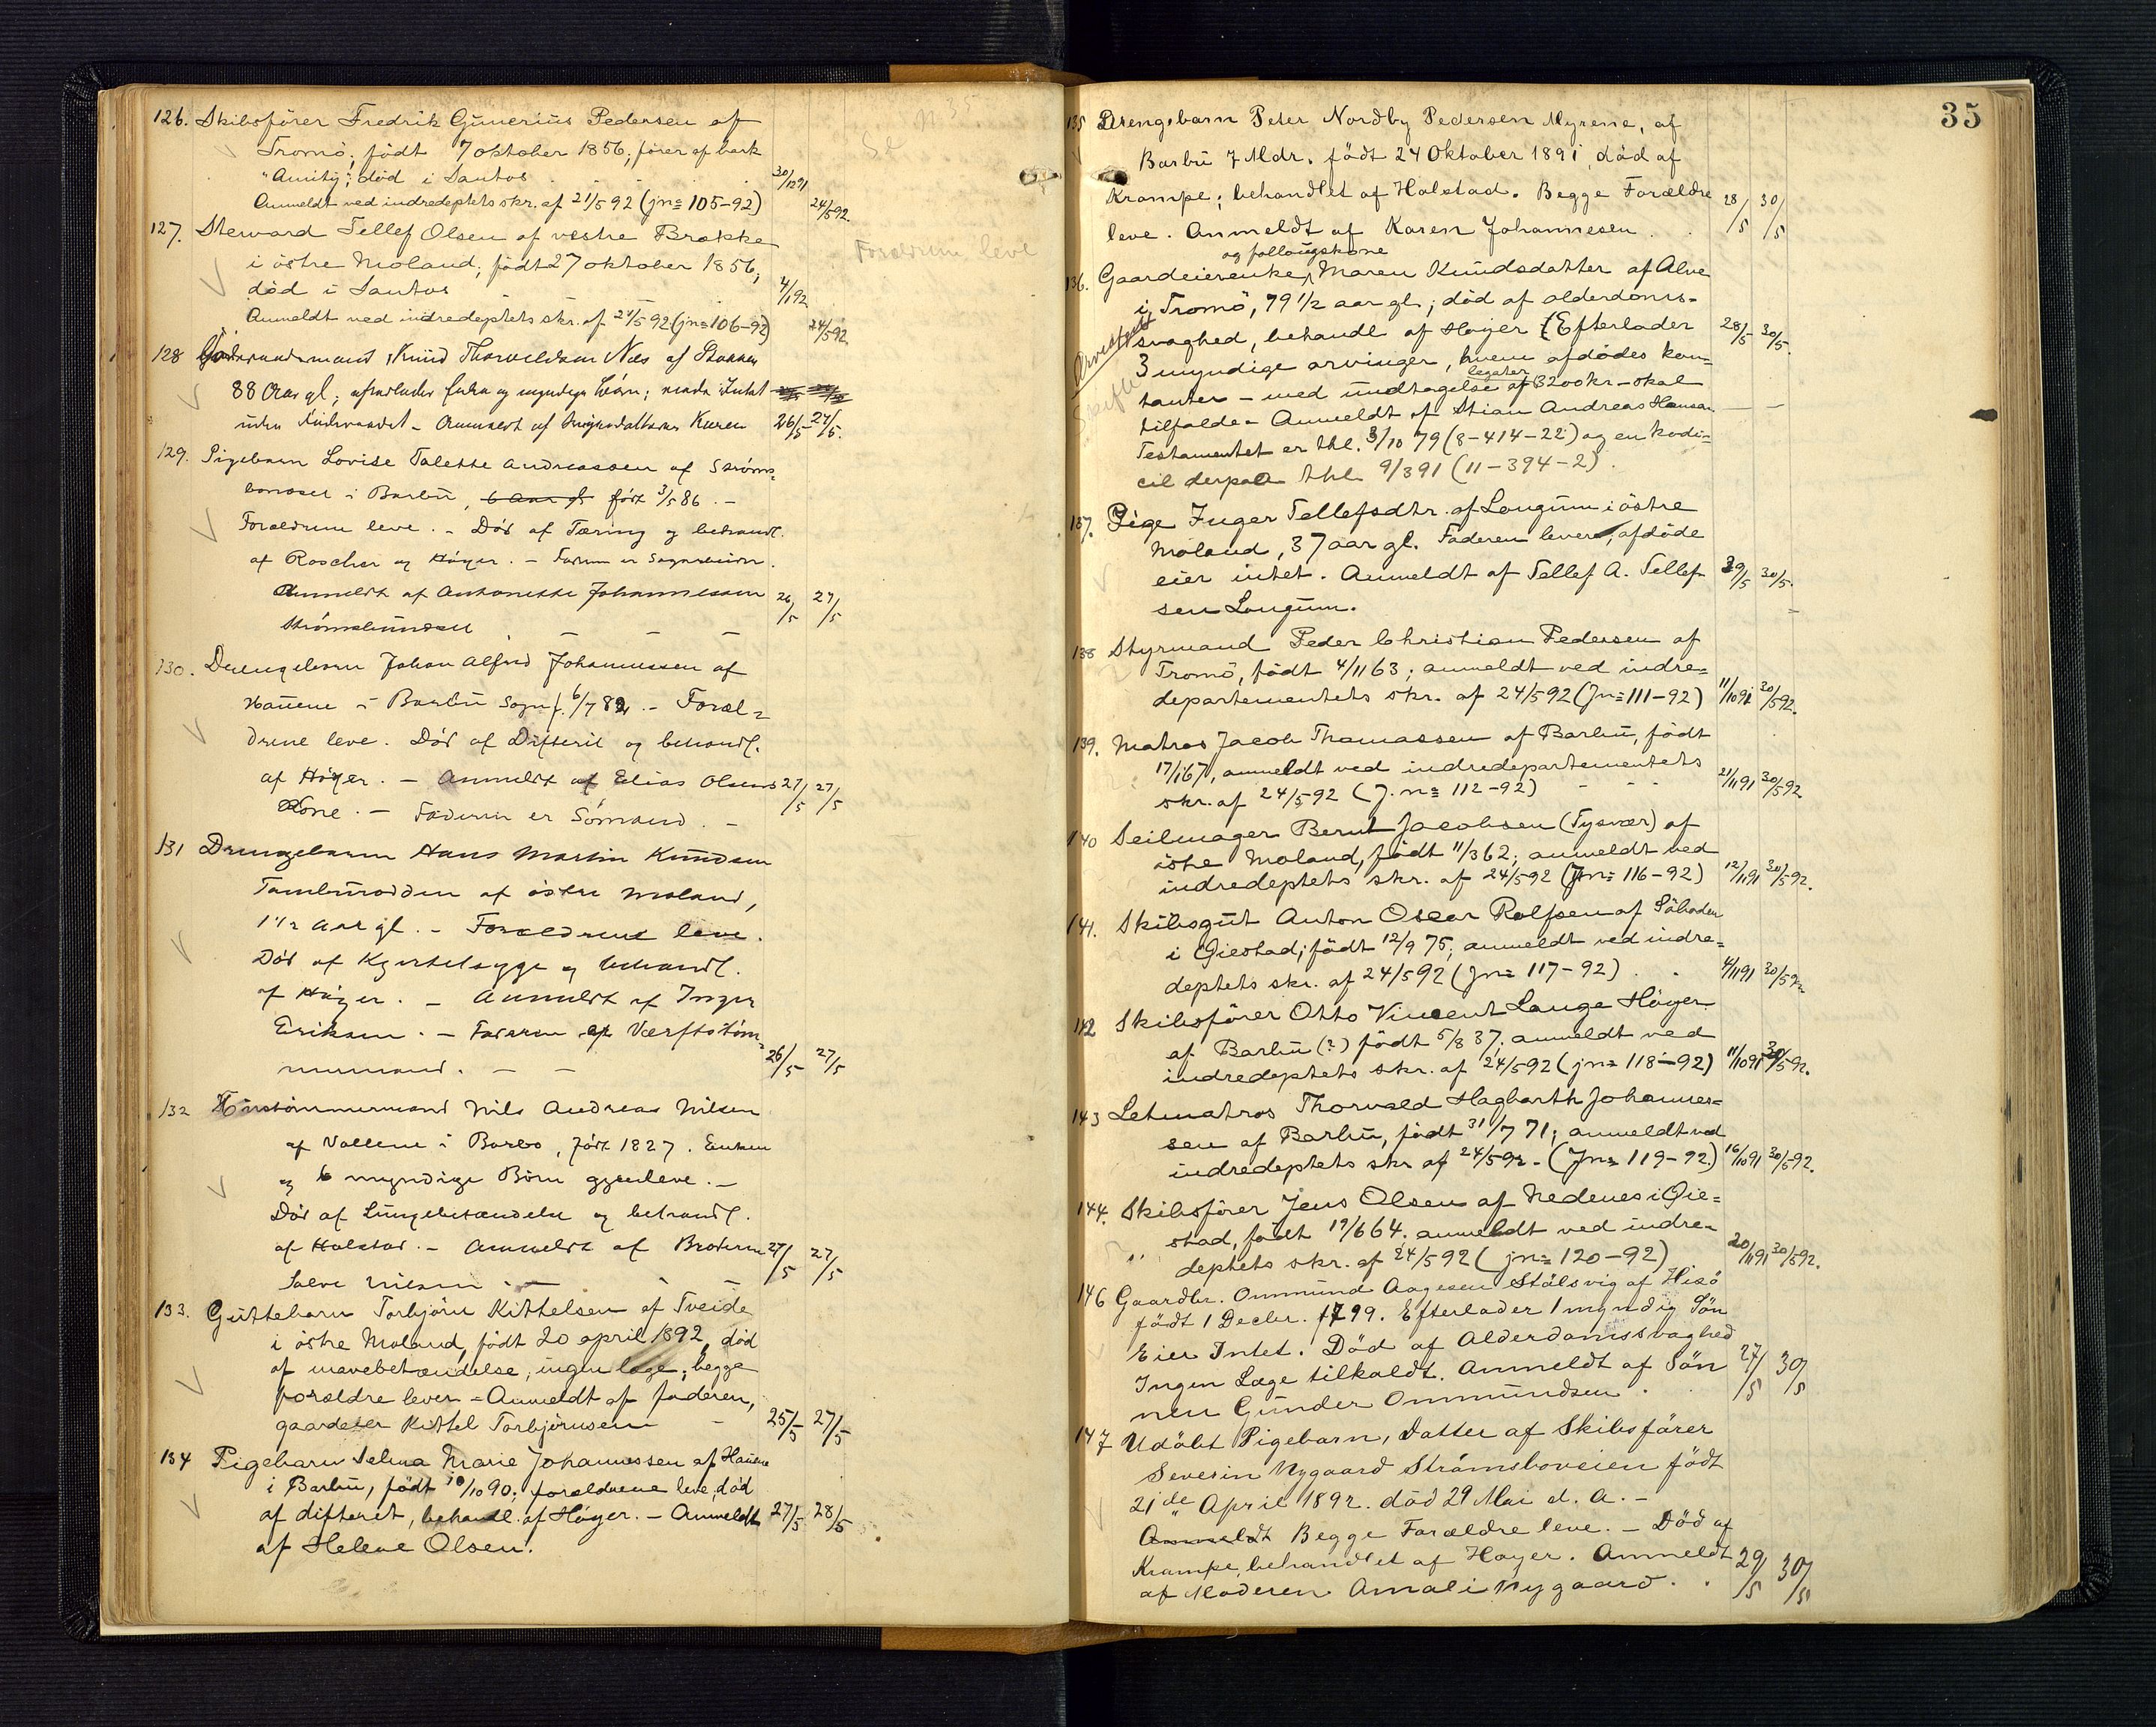 126. Skibsfører Fredrik Gunerius Pedersen af
Tromö, født 7 oktober 1856; fører af bark
"Amity"; død i Santos 30/12 91
Anmeldt ved indredeptets skr. af 21/5 92 (jn= 105-92) 24/5 92.
127. Steward Tellef Olsen af vestre Brække
i östre Moland; født 27 oktober 1856;
död i Santos 4/1 92
Anmeldt ved indredeptets skr. af 21/5 92 (jn= 106-92) 24/5 92.
128 Knud Thorvaldsen Næs af Stokken
88 Aar gl; efterlader Enke og myndige Börn;
Anmeldt af 26/5 27/5.
129. Pigebarn Lovise Talette Andreassen af Ströms=
i Barbu, 6 Aar gl født 3/5 86. -
Forældrene leve. - Död af Tæring og behandl.
af Roscher og Höyer. - Faderen er
Anmeldt af Antonette Johannessen 26/5 27/5
Strömsbunden
130. Drengebarn Johan Alfred Johannessen af
Hauene i Barbu Sogn f. 6/7 82. - Foræl=
drene leve. Död af Difterit og behandl.
af Höyer. - Anmeldt af Elias Olsens 27/5 27/5
Kone. - Faderen er Sömand. -
131 Drengebarn Hans Martin Knudsen
af östre Moland,
1 1/2 Aar gl. - Forældrene leve.
Död af Kjertelsyge og behandl.
af Höyer. - Anmeldt af Inger
Eriksen. - Faderen er Værftstöm=
mermand. 26/5 27/5
132 Hustömmermand Nils Andreas Nilsen
af Vallene i Barbo, født 1827. Enken
og 6 myndige Börn gjenleve. -
Död af Lungebetændelse og behandl.
af Halstad. - Anmeldt af Broderen 27/5 27/5
Salve Nilsen
133. Guttebarn Torbjörn Kittelsen af Tveide
i östre Moland, født 20 april 1892, död
af mavebetændelse, ingen læge; begge
forældre lever - Anmeldt af faderen,
gaardeier Kittel Torbjörnsen 25/5 27/5
134 Pigebarn Selma Marie Johannessen af Hauene
i Barbu, født 10/10 90; forældrene leve; död
af difterit, behandl. af Höyer. - Anmeldt 27/5 28/5
af Helene Olsen.
Forældrene leve
35
135 Drengebarn Peter Nordby Pedersen Myrene, af
Barbu 7 Mdr. födt 24 Oktober 1891, död af
Krampe; behandlet af Halstad. Begge Forældre 28/5 30/5
leve. Anmeldt af Karen Johannesen
og follougskone
136. Gaardeierenke, Maren Knudsdatter af Alve
i Tromö, 79 1/2 aar gl; död af alderdoms-
svaghed, behandl af Höyer (Efterlader 28/5 30/5.
3 myndige arvinger, hvem afdödes kon=
tanter - med undtagelse af legater 3200 kr - skal
tilfalde - Anmeldt af Stian Andreas Hansen
Testamentet er thl. 3/10 79 (8-414-22) og en kodi=
cil derpaa thl 9/3 91 (11-394-2).
137. Pige Inger Tellefsdtr. af Longum i östre
Moland, 37 aar gl. Faderen lever, afdöde
eier intet. Anmeldt af Tellef A. Tellef- 29/5 30/5.
sen Longum.
138 Styrmand Peder Christian Pedersen af
Tromö, födt 4/11 63; anmeldt ved indre=
departementets skr. af 24/5 92 (Jn= 111-92) 11/10 91 30/5 92.
139. Matros Jacob Thomassen af Barbu, födt
17/1 67, anmeldt ved indredepartementets
skr. af 24/5 92 (J.n= 112-92) 21/11 91 30/5 92
140 Seilmager Bernt Jacobsen (Tysvær) af
östre Moland, födt 11/3 62; anmeldt ved
indredeptets skr. af 24/5 92 (Jn= 116-92) 12/11 91 30/5 92.
141. Skibsgut Anton Oscar Rolfsen af
i Öiestad; födt 12/9 75; anmeldt ved indre=
deptets skr. af 24/5 92 (Jn= 117-92) 4/11 91 30/5 92
142 Skibsförer Otto Vincent Lange Höyer
af Barbu (?) födt 5/8 37; anmeldt ved
indredeptets skr. af 24/5 92 (jn= 118-92) 11/10 91 30/5 92.
143 Letmatros Thorvald Hagbarth Johannes=
sen af Barbu, födt 31/7 71; anmeldt ved
indredeptets skr af 24/5 92 - (Jn= 119-92) 16/10 91 30/5 92.
144. Skibsförer Jens Olsen af Nedenes i Öie=
stad, födt 19/6 64. anmeldt ved indre=
deptets skr. af 24/5 92 (jn= 120-92) 20/11 91 30/5 92.
146 Gaardbr. Ommund Aagesen Stålsvig af Hisö
födt 1 Decbr. 1799. Efterlader 1 myndig Sön
Eier Intet. Död af Alderdomssvaghed
Ingen Læge tilkaldt. Anmeldt af Sön 27/5 30/5
nen Gunder Ommundsen.
147 Udöbt Pigebarn, Datter af Skibsförer
Severin Nygaard Strömsboveien födt
21de April 1892. död 29 Mai d. A. -
Anmeldt Begge Forældre leve. - Död af
Krampe, behandlet af Høyer. Anmeldt 29/5 30/5
af Moderen Amali Nygaard.